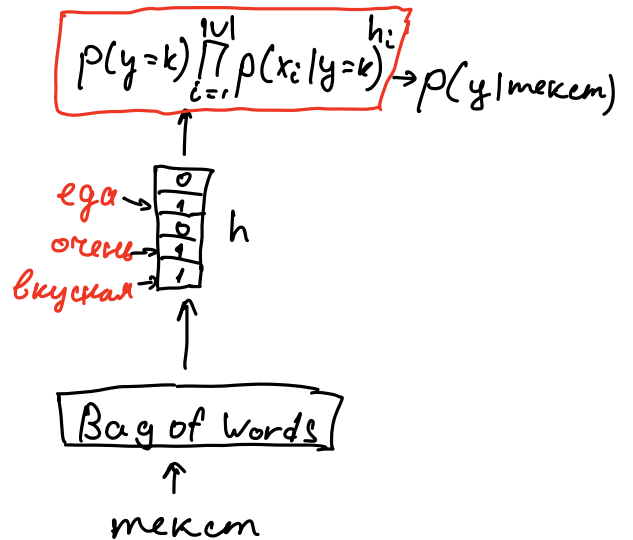 p(y=k) ∏_{i=1}^{|V|} p(x_i|y=k)^{h_i} → p(y|текст)
0
еда 1
0
h
очень 1
вкусная 1
Bag of words
текст